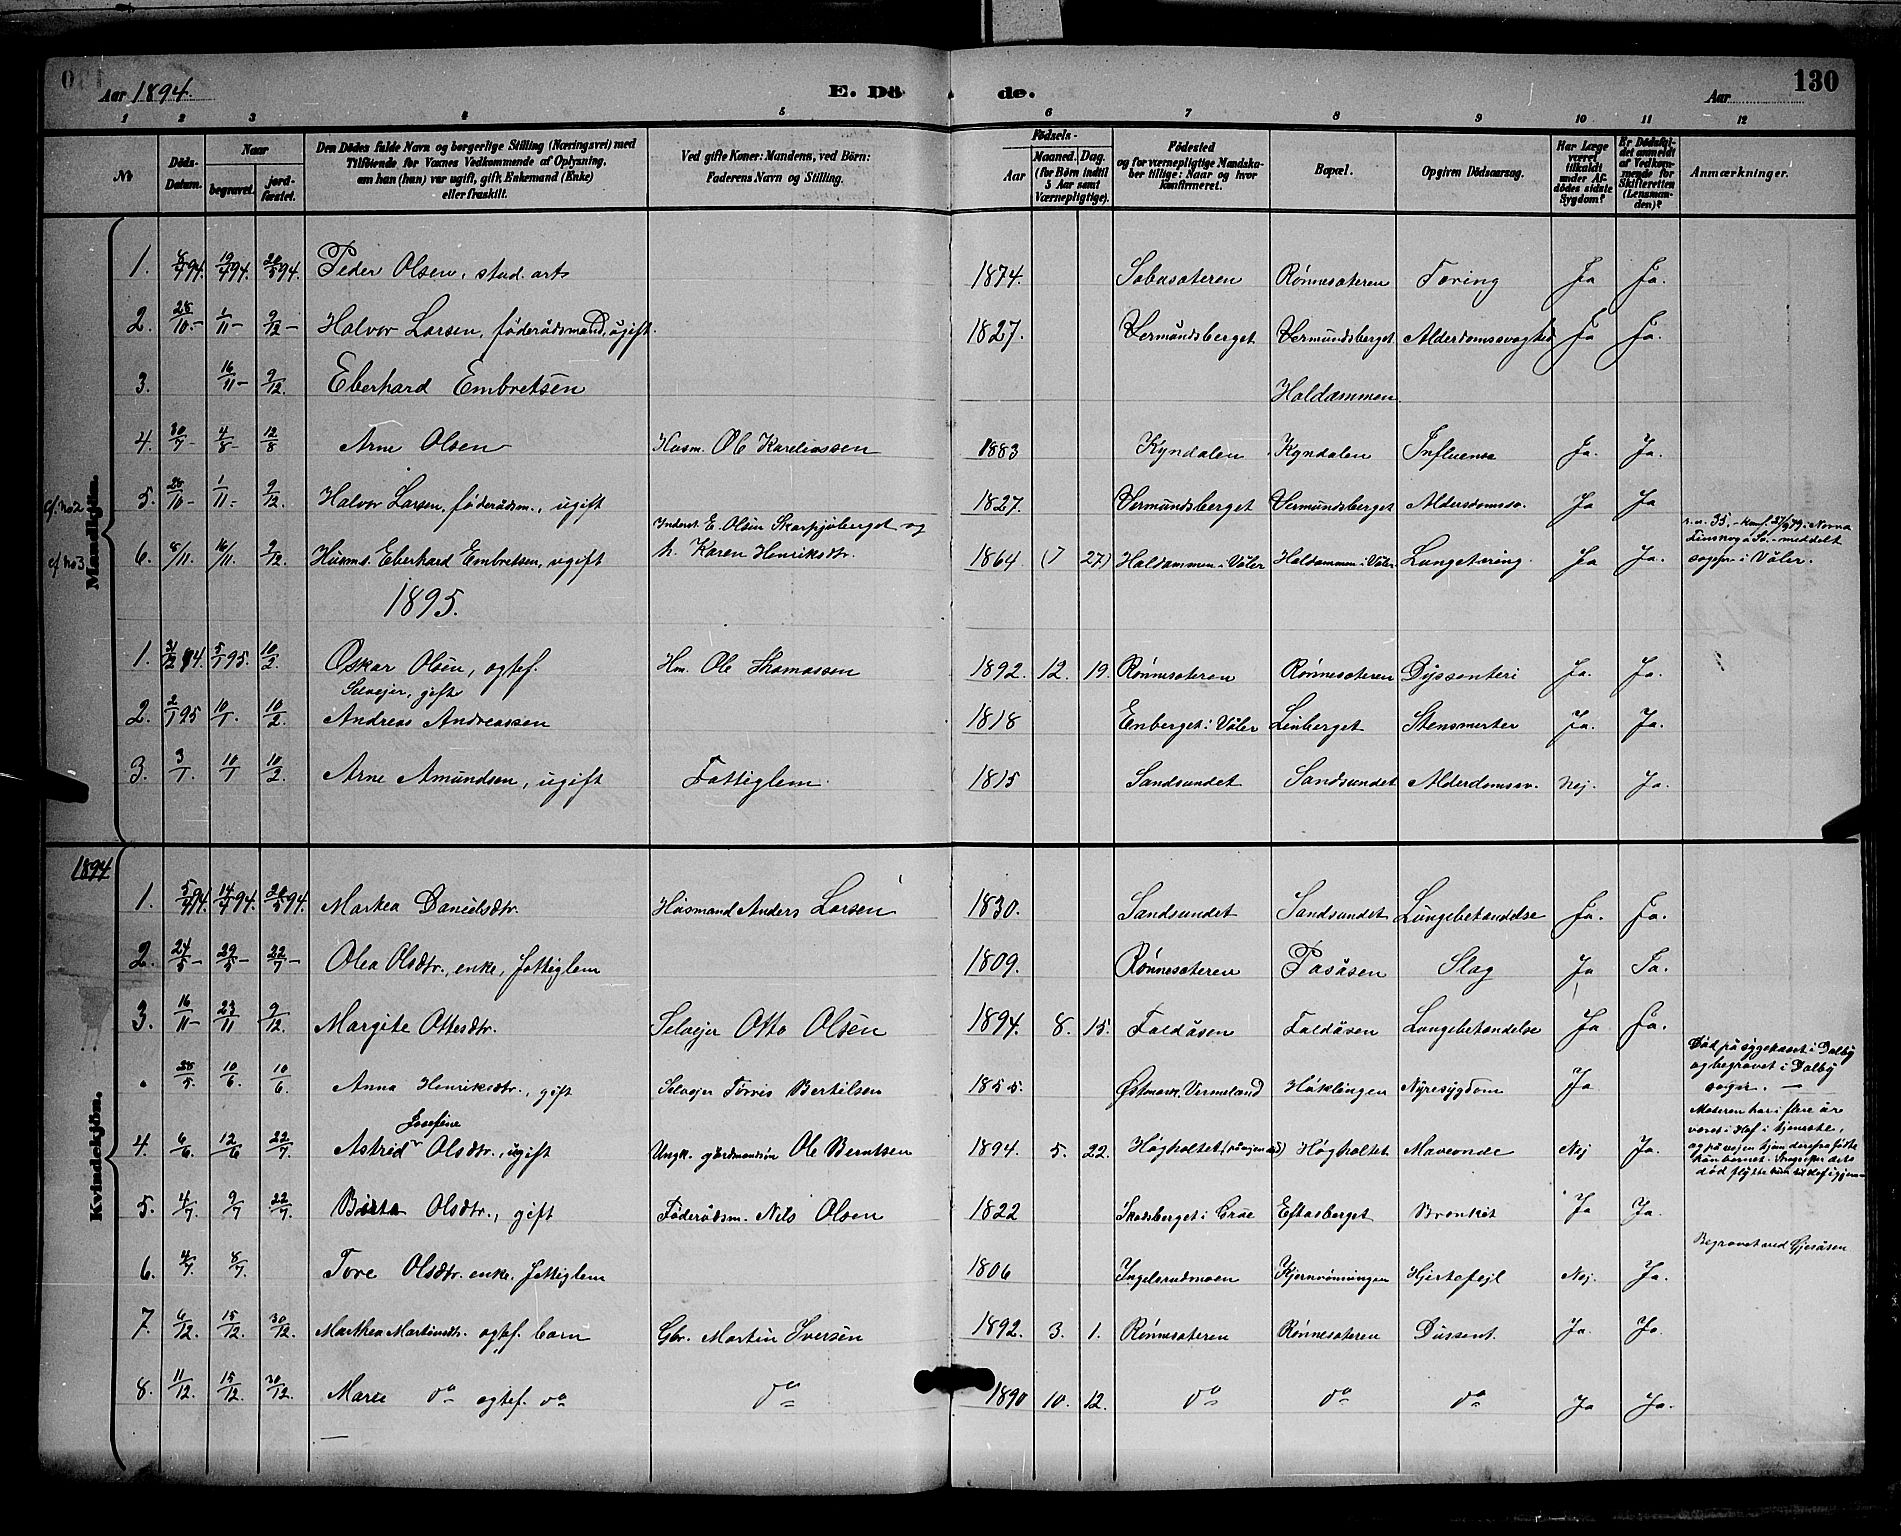 Aar 1894. E. Dö de. Aar 130
1 2 3 4 5 6 7 8 9 10 11 12
№ Döds-Datum. Naar begravet. jord-fæstet. Den Dödes fulde Navn og borgerlige Stilling (Næringsvei) med Tilföiende for Voxnes Vedkommende af Oplysning, om han (hun) var ugift, gift, Enkemand (Enke) eller fraskilt. Ved gifte Koner: Mandens, ved Börn: Faderens Navn og Stilling. Födsels- Aar Maaned. Dag. (for Börn indtil 5 Aar samt Værnepligtige). Födested og for værnepligtige Mandskaber tillige: Naar og hvor konfirmeret. Bopæl. Opgiven Dödsaarsag. Har Læge været tilkaldt under Afdödes sidste Sygdom? Er Dödsfaldet anmeldt af Vedkommende for Skifteretten (Lensmanden)? Anmærkninger.
Mandkjön.
1. 8/4 94. 19/4 94. 20/5 94. Peder Olsen, stud. arts 1874. Sobusæteren Rønnesæteren Tæring Ja Ja.
2. 28/10 - 1/11 - 9/12 - Halvor Larsen, føderådsmand, ugift. 1827. Vermundsberget Vermundsberget Alderdomssvaghed Ja Ja.
3. 16/11 - 9/12. Eberhard Embretsen Haldammen.
4. 30/7 - 4/8 - 12/8 Arne Olsen Husm. Ole Kareliussen 1883 Kyndalen Kyndalen Influensa Ja. Ja.
cf. no 2 5. 28/10 - 1/11 - 9/12. Halvor Larsen, føderådsm., ugift 1827. Vermundsberget Vermundsberget Aldersdomssv. Ja Ja
cf no 3 6. 8/11. 16/11. 9/12. Husms. Eberhard Embretsen, ugift Inderst E. Olsen Skarpjøberget og h. Karen Henriksdtr. 1864 (7 27) Haldammen i Våler Haldammen i Våler Lungetæring. Ja Ja.
1895.
1. 31/12 94. 5/1 95. 10/2. Oskar Olsen, ægtef. Hm. Ole Thomassen 1892. 12. 19. Rønnesæteren Rønnesæteren Dyssenteri Ja. Ja.
Selvejer, gift
2. 2/1 95 10/1. 10/2 Andreas Andreassen 1818 Enberget i Våler Linberget Stensmerter Ja. Ja.
3. 3/1. 10/1 10/2 Arne Amundsen, ugift Fattiglem. 1815 Sandsundet Sandsundet Alderdomssv. Nej. Ja.
1894
Kvindekjön.
1. 5/4 94. 14/4 94. 20/5 94. Markea Danielsdtr. Husmand Anders Larsen 1830. Sandsundet Sandsundet Lungebetændelse Ja. Ja.
2. 24/5 - 29/5 - 22/7 - Olea Olsdtr., enke, fattiglem 1809. Rønnesæteren Pasåsen Slag Ja Ja.
3. 16/11 - 23/11 9/12. Margite Ottesdtr. Selvejer Otto Olsen 1894. 8. 15. Faldåsen Faldåsen Lungebetændelse Ja Ja.
. 28/5. 10/6. 10/6. Anna Henriksdtr., gift Selvejer Torvis Bertilsen 1855. Østmark, Vermeland Håklingen Nyresygdom Ja Død på sygehuset i Dalby og begravet i Dalby sogn. —
Josefine
4. 6/6. 12/6 22/7. Astrid Olsdtr., ugift Ungk. gårdmandsøn Ole Berntsen 1894. 5. 22. Høgholtet Høgholtet Maveonde Nej Ja. Moderen har i flere år været i Hof i tjeneste, og på vejen hjem derfra fødte hun barnet.
5. 4/7. 9/7 22/7. Birte Olsdtr., gift Føderådsm. Nils Olsen 1822 Skadsberget i Grue Eftasberget Bronkit Ja Ja.
6. 4/7. 8/7. Tore Olsdtr. enke, fattiglem 1806 Ingelsrudmoen Kjernmoningen Hjertefejl Nej. Ja. Begravet ved Gjesåsen
7. 6/12. 15/12. 30/12. Marthea Martinsdtr. ægtef. barn Gbr. Martin Iversen 1892. 3. 1. Rønnesæteren Rønnesæteren Dissent. Ja. Ja.
8. 11/12. 15/12. 30/12. Marie do ægtef. do do 1890 10. 12. do do do Ja Ja.